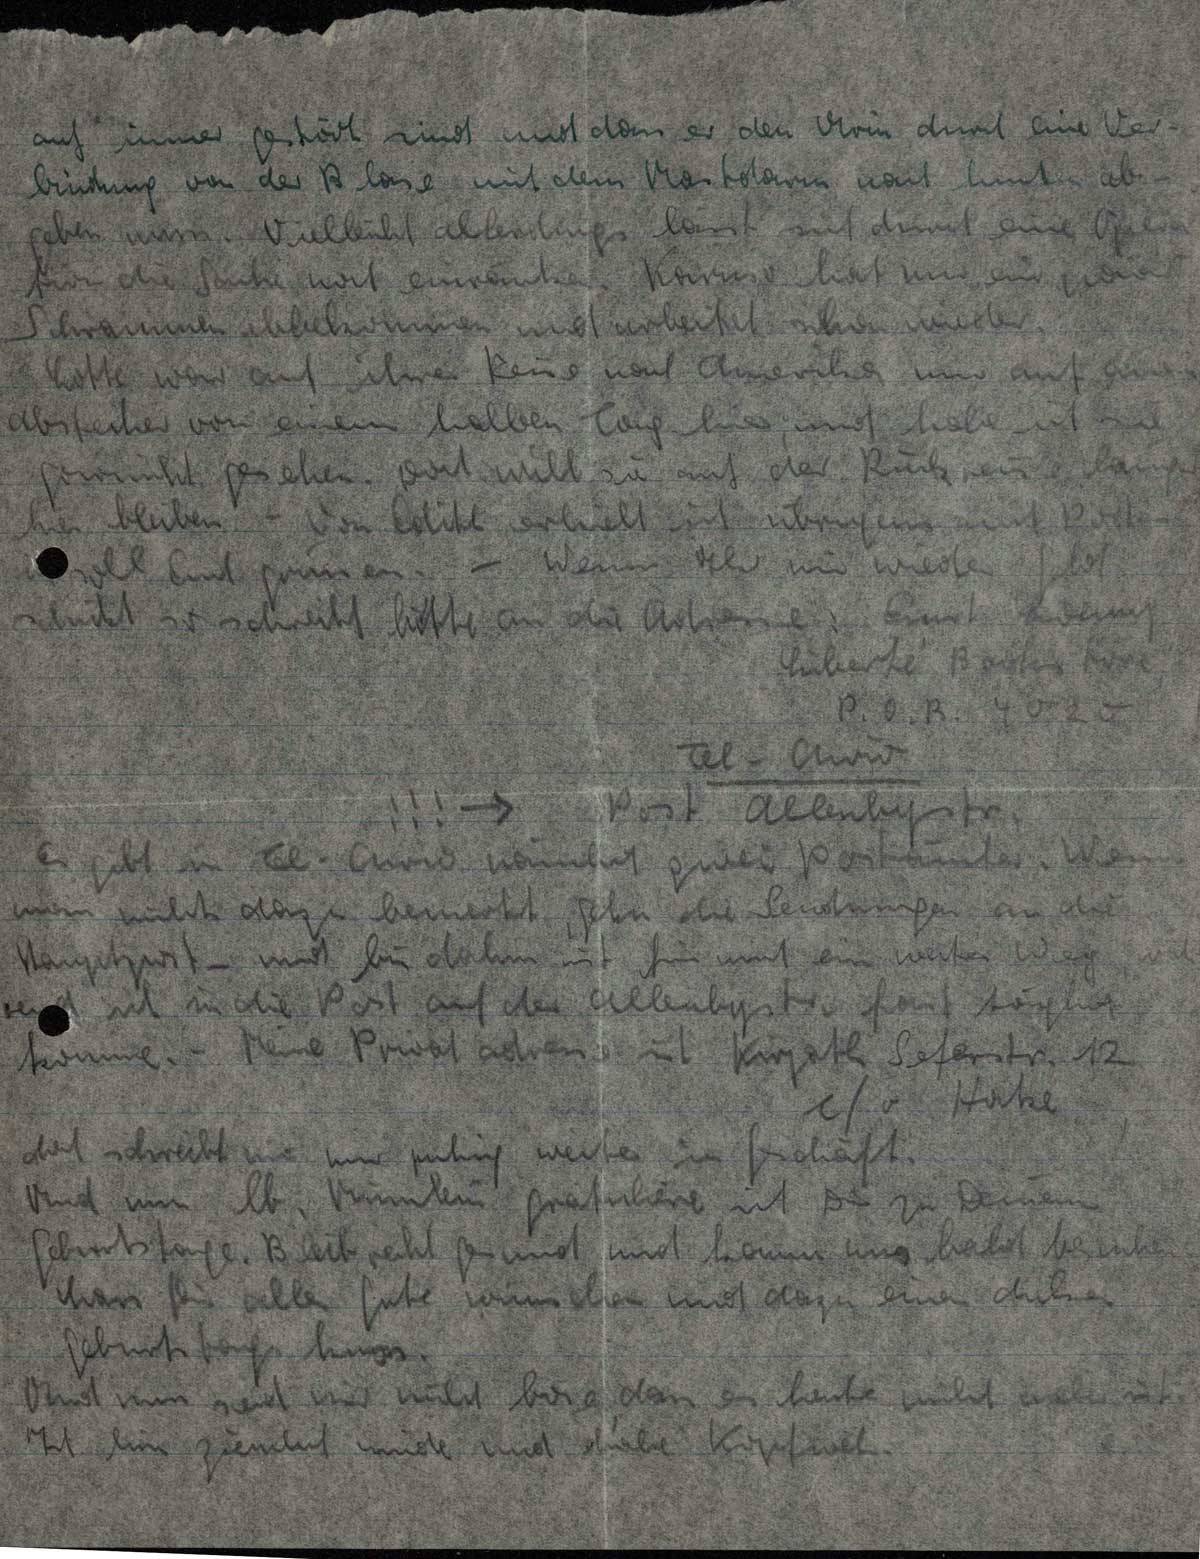 auf immer gestört sind und dass er den Urin durch eine Ver-
bindung von der Blase mit dem Mastdarm nach hinten ab-
geben muss. Vielleicht allerdings lässt sich durch eine Opera
tion die Sache noch einrenken. hat nur ein paar
Schrammen abbekommen und arbeitet schon wieder.
Lotte war auf ihrer Reise nach Amerika nur auf einen
Abstecher von einem halben Tag hier und habe ich sie
gesehen. Doch will sie auf der Rückreise länger
hier bleiben - Von Edith erhielt ich übrigens auch Post
soll Euch grüssen. - Wenn Ihr mir wieder Geld
schickt so schreibt bitte an die Adresse: Ernst
P.O.B. 4025
Tel-Aviv
!!! → Post Allenbystr.
Es gibt in Tel-Aviv nämlich zwei Postämter. Wenn
man nichts dazu bemerkt gehn die Sendungen an die
Hauptpost - und bis dahin ist für mich ein weiter Weg, wäh
rend ich in die Post auf der Allenbystr. fast täglich
komme. - Meine Privatadresse ist Kirjath Seferstr. 12
c/o Hake
doch schreibt mir nur ruhig weiter ins Geschäft.
Und nun lb. gratuliere ich Dir zu Deinem
Geburtstage. Bleib recht gesund und komm uns bald besuchen
Lass Dir alles Gute wünschen und dazu einen dicken
Geburtstagskuss.
Und nun seid mir nicht böse, dass es heute nicht mehr ist
Ich bin ziemlich müde und habe Kopfweh.